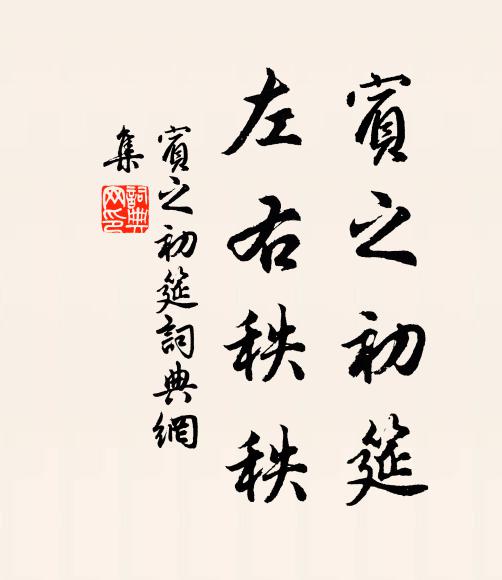 賓之初筵
左右秩秩
賓之初筵詞典網
集
詞典網印